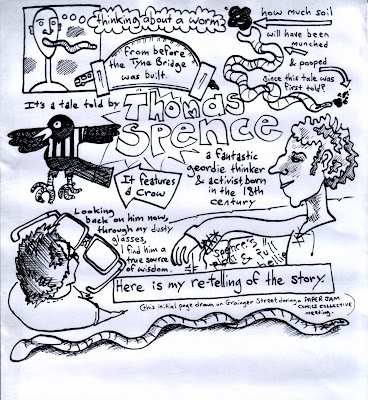 thinking about a worm
from before
the Tyne Bridge
was built.
how much soil
will have been
munched
& pooped
since this tale was
first told?
It's a tale told by
Thomas
SPENCE
a fantastic
geordie thinker
& activist, born
in the 18th
century
It features
a Crow
Looking
back on him now,
through my dusty
glasses,
I find him a
true source
of wisdom.
Spence's
Full
Here is my re-telling of the story.
(this initial page drawn on Grainger Street during a PAPER JAM
COMICS COLLECTIVE
meeting.